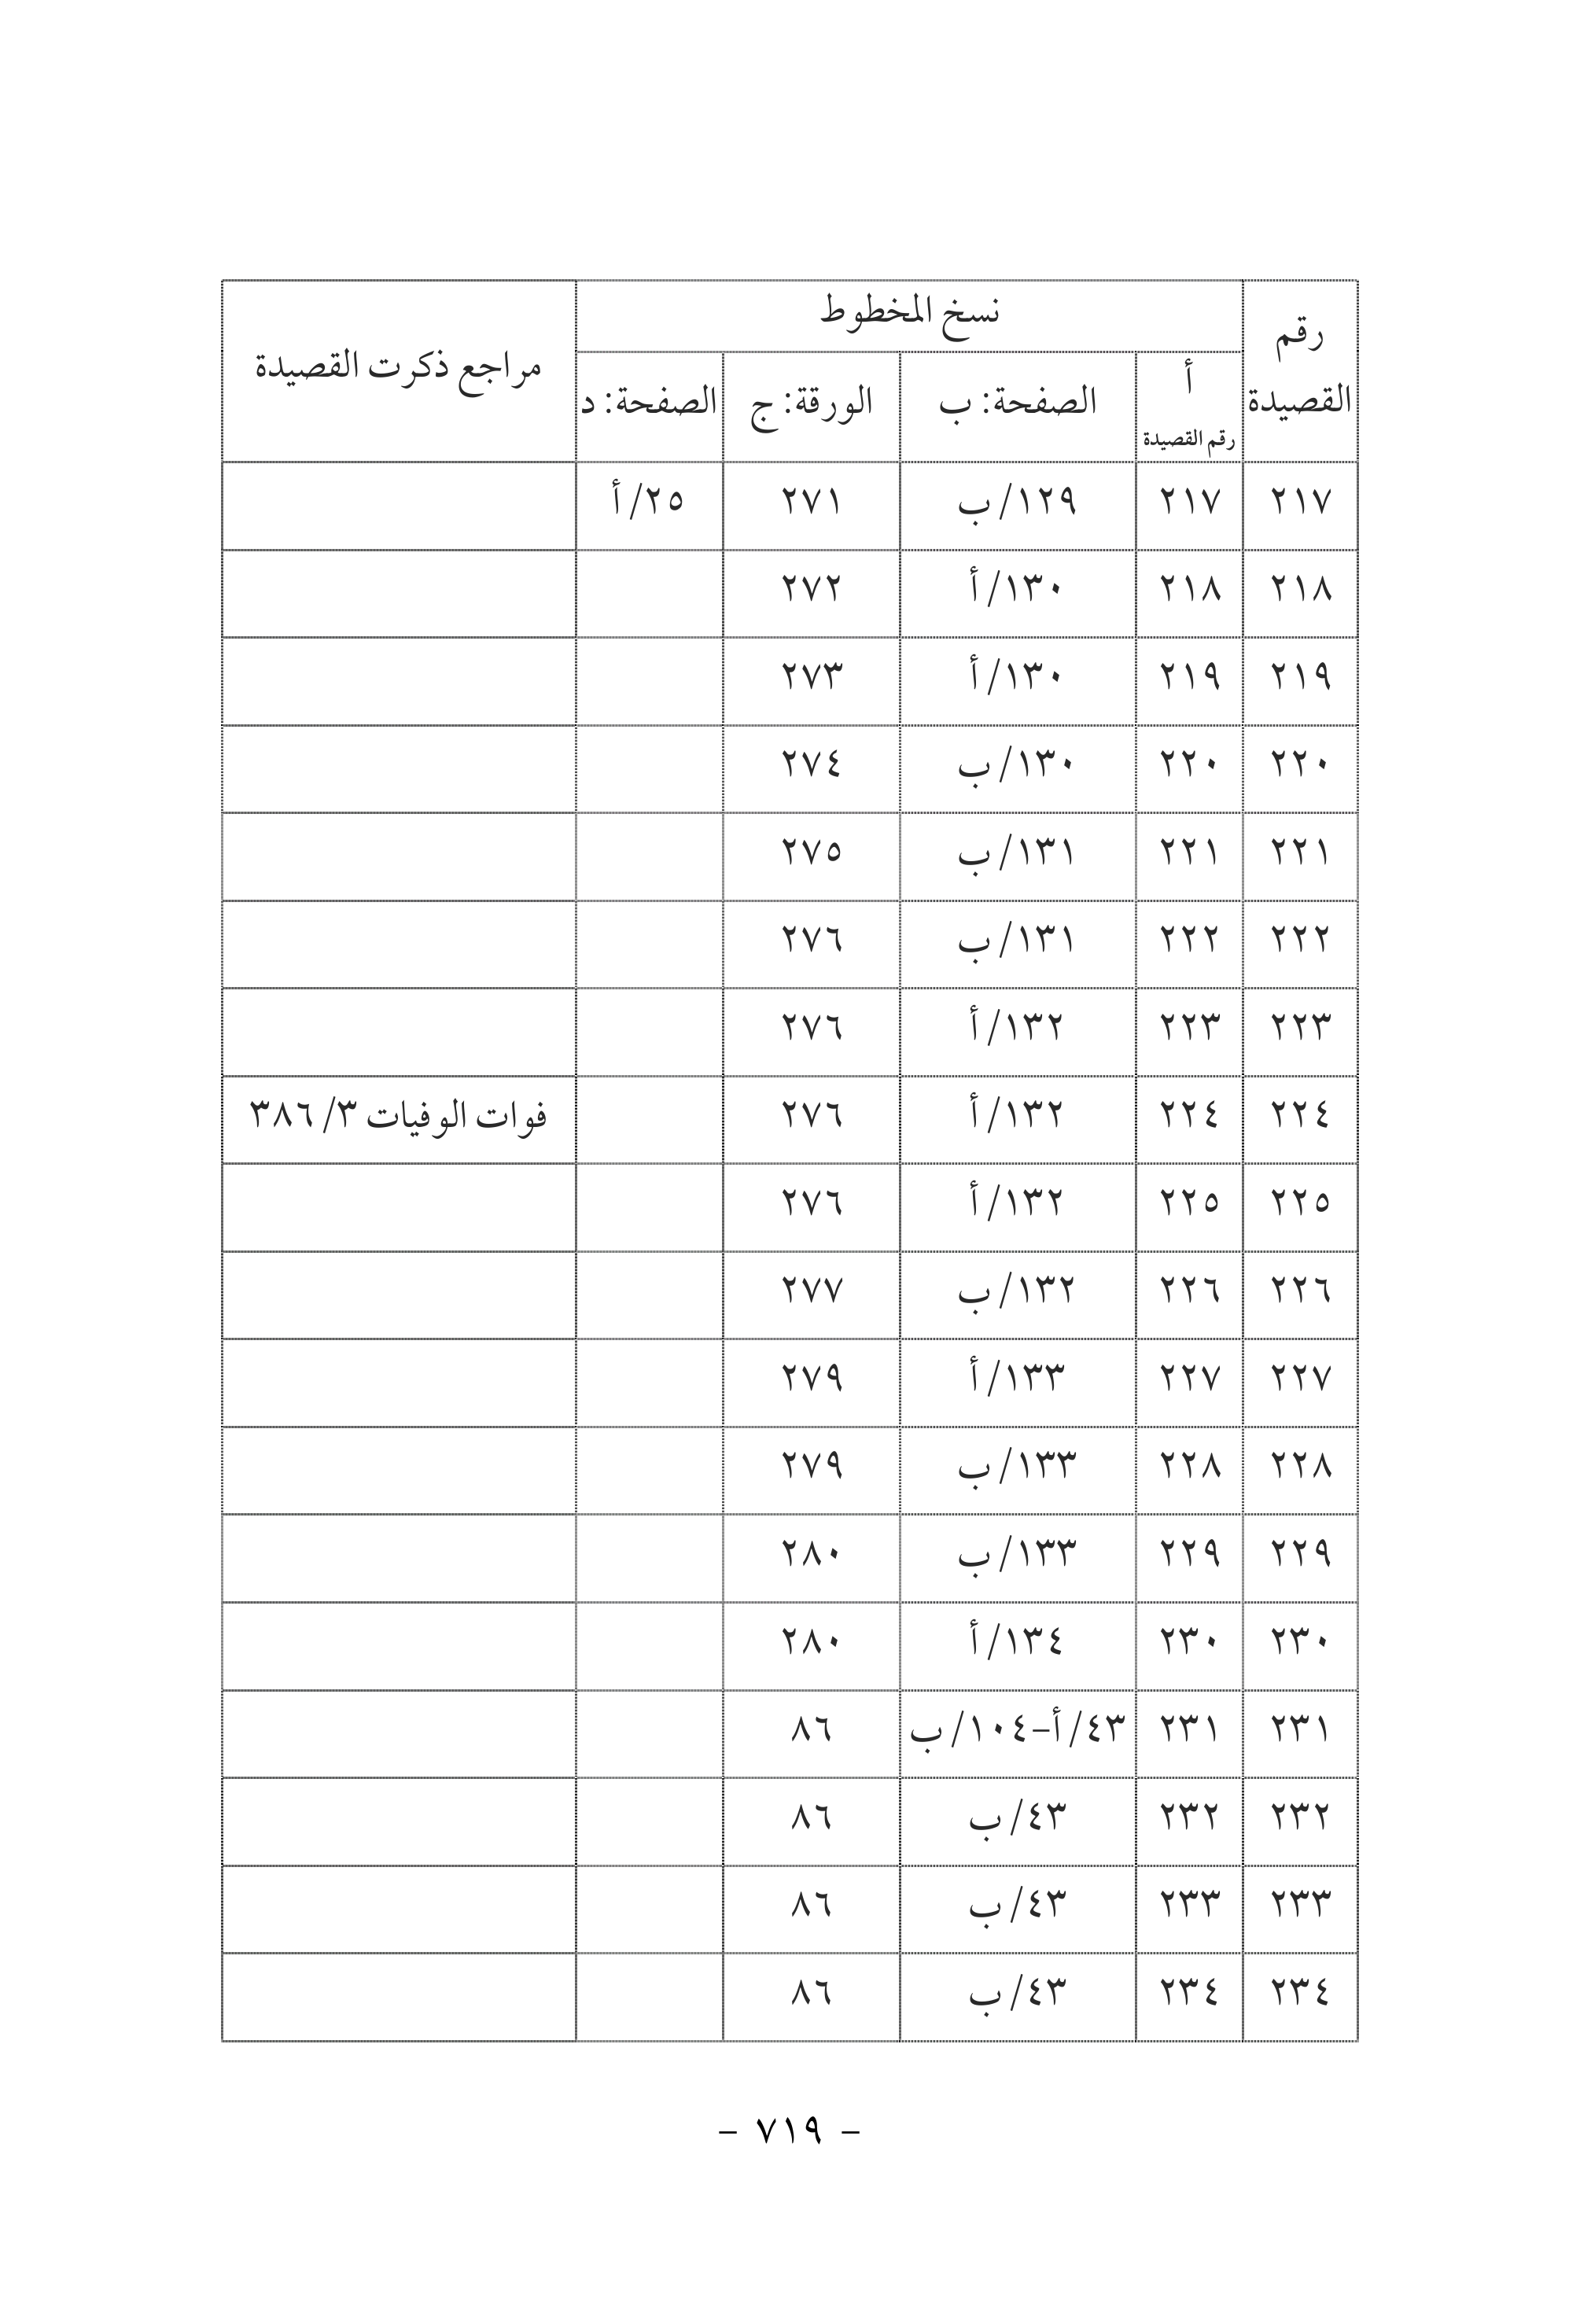 رقم القصيدة نسخ المخطوط مراجع ذكرت القصيدة
أ رقم القصيدة الصفحة: ب الورقة: ج الصفحة: د
٢١٧ ٢١٧ ١٢٩/ب ٢٧١ ٢٥/أ
٢١٨ ٢١٨ ١٣٠/أ ٢٧٢
٢١٩ ٢١٩ ١٣٠/أ ٢٧٣
٢٢٠ ٢٢٠ ١٣٠/ب ٢٧٤
٢٢١ ٢٢١ ١٣١/ب ٢٧٥
٢٢٢ ٢٢٢ ١٣١/ب ٢٧٦
٢٢٣ ٢٢٣ ١٣٢/أ ٢٧٦
٢٢٤ ٢٢٤ ١٣٢/أ ٢٧٦ فوات الوفيات ٣/ ٣٨٦
٢٢٥ ٢٢٥ ١٣٢/أ ٢٧٦
٢٢٦ ٢٢٦ ١٣٢/ب ٢٧٧
٢٢٧ ٢٢٧ ١٣٣/أ ٢٧٩
٢٢٨ ٢٢٨ ١٣٣/ب ٢٧٩
٢٢٩ ٢٢٩ ١٣٣/ب ٢٨٠
٢٣٠ ٢٣٠ ١٣٤/أ ٢٨٠
٢٣١ ٢٣١ ٤٣/أ-١٠٤/ب ٨٦
٢٣٢ ٢٣٢ ٤٣/ب ٨٦
٢٣٣ ٢٣٣ ٤٣/ب ٨٦
٢٣٤ ٢٣٤ ٤٣/ب ٨٦
- ٧١٩ -